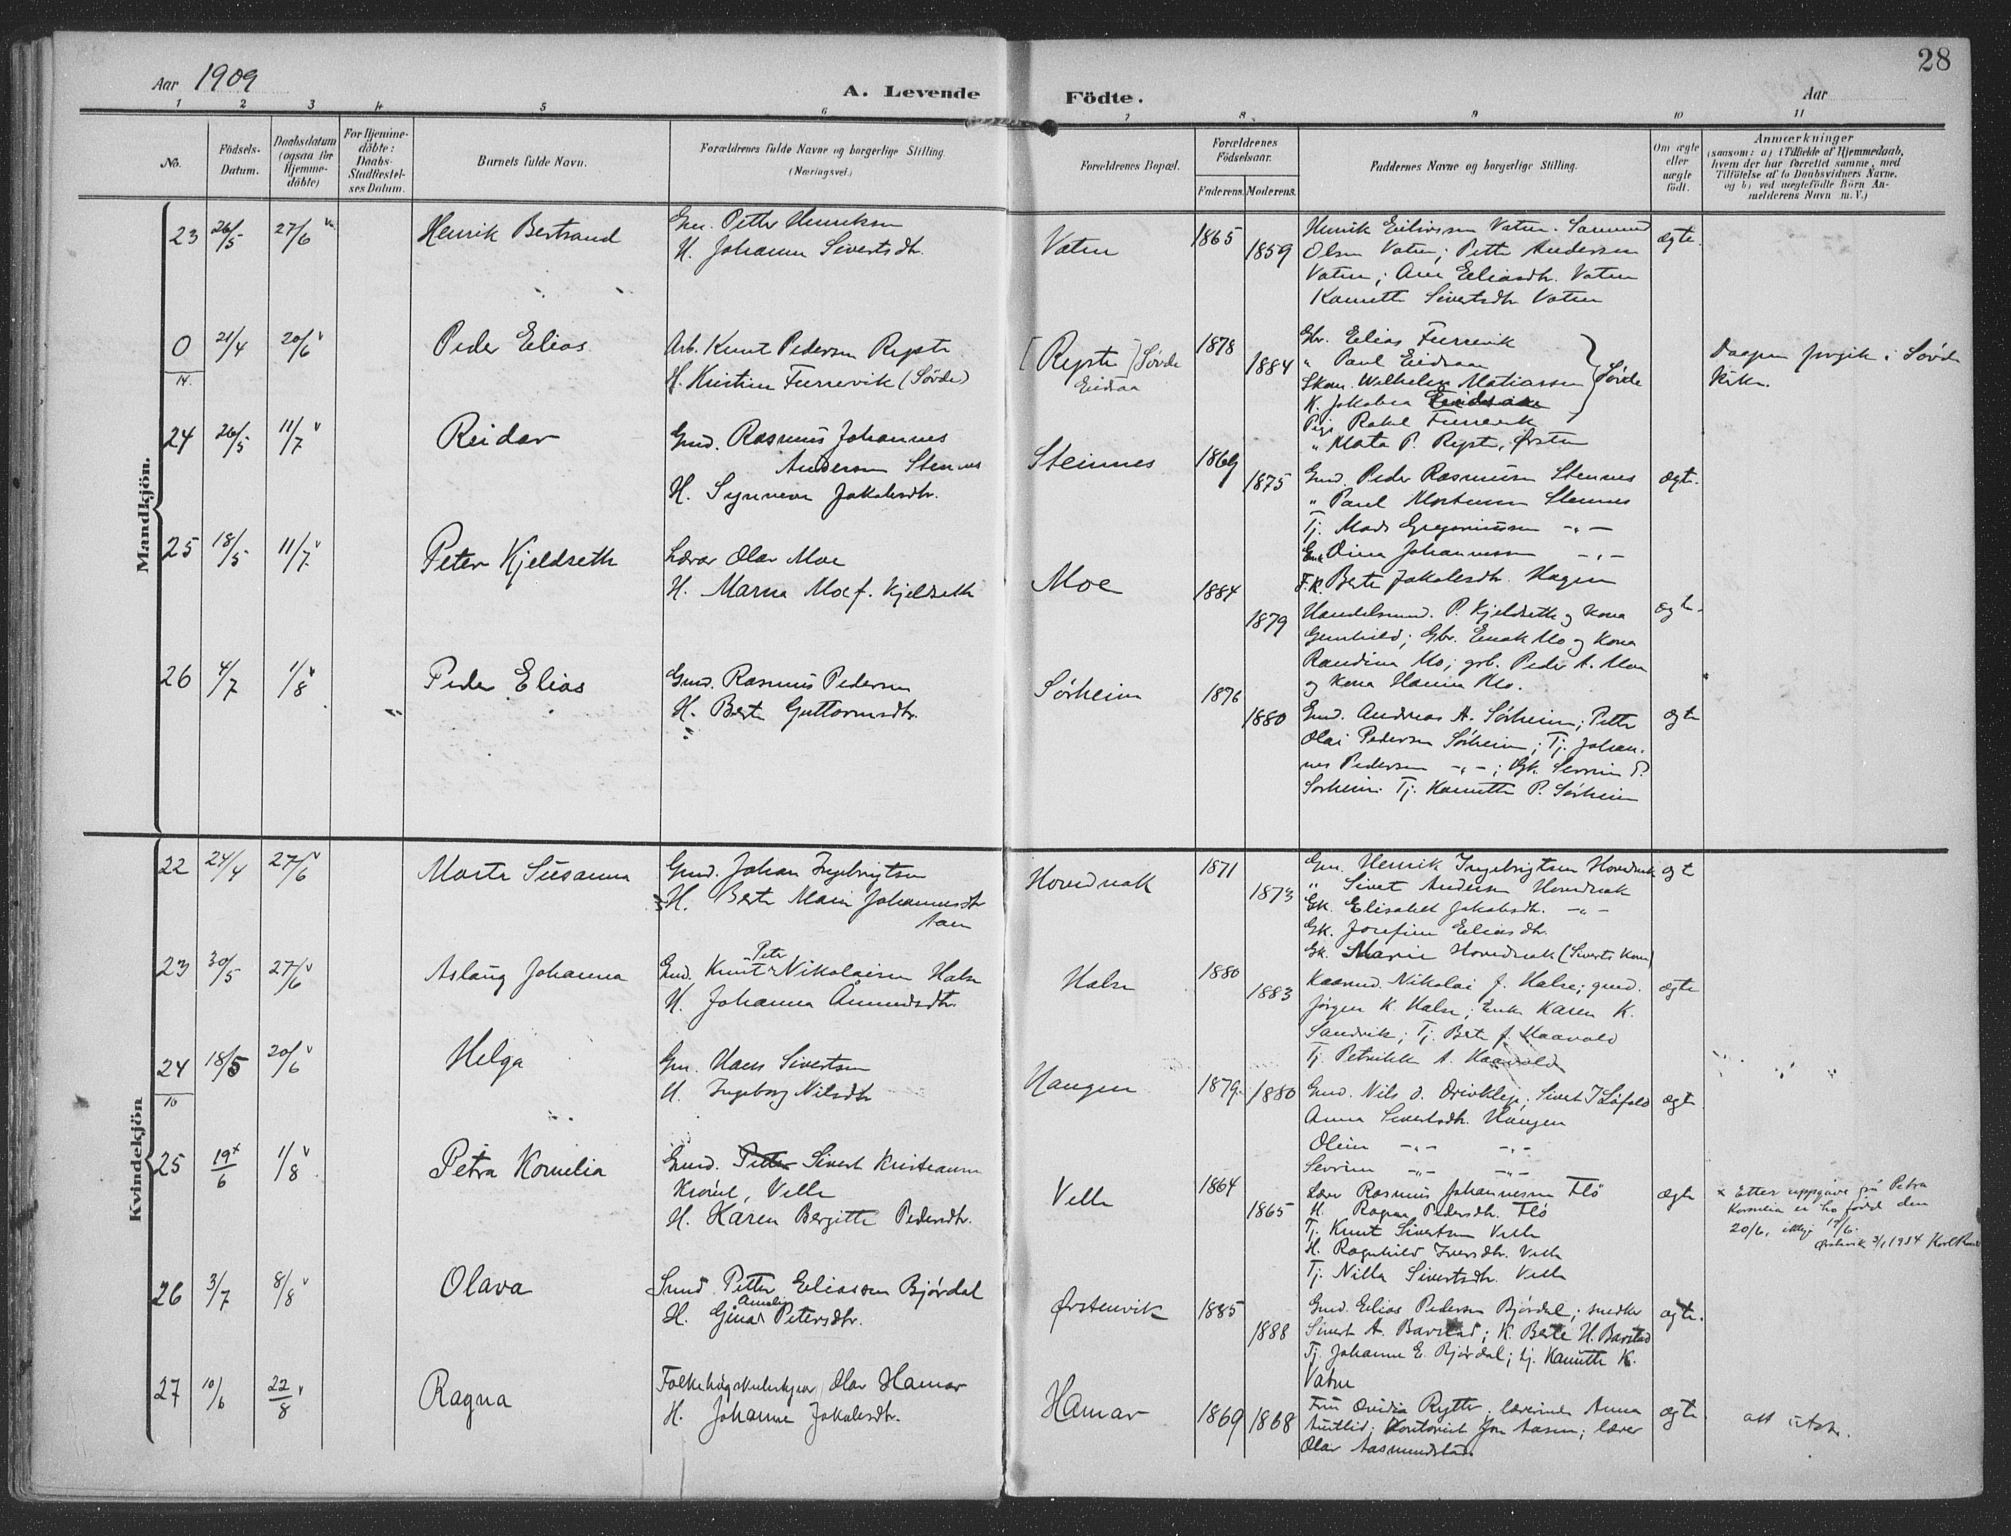 28
Aar 1909
A. Levende Födte.
Aar
1 2 3 4 5 6 7 8. 9 10 11
No.
Födsels-
Datum.
Daabsdatum
(ogsaa for
Hjemme-
döbte)
For Hjemme-
döbte:
Daabs-
Stadfæstel-
ses Datum.
Barnets fulde Navn.
Forældrenes fulde Navne og borgerlige Stilling.
(Næringsvei.)
Forældrenes Bopæl.
Forældrenes
Födselsaar.
Faderens. Moderens.
Faddernes Navne og borgerlige Stilling.
Om ægte
eller
uægte
födt.
Anmærkninger
(saasom: a) i Tilfælde af Hjemmedaab,
hvem der har forrettet samme, med
Tilföielse af to Daabsvidners Navne.
og b) ved uægtefödte Börn An-
melderens Navn m. V.)
Mandkjön.
23 26/5 27/6 v Henrik Bertrand
Gm. Petter Henriksen
H. Johanne Sivertsdtr.
Vatne 1865 1859
Henrik Eilivsen Vatne. Samund
Olsen Vatne; Petter Andersen
Vatne; Ane Eliasdtr. Vatne
Kanutte Sivertsdtr Vatne
ægte.
0 21/4 20/6 v Peder Elias
14.
Arb. Knut Pedersen Rypste
H. Kristine Furrevik (Søvde)
[Rypste] Søvde
Eidsaa
1878 1884
Gbr. Elias Furrevik
" Paul Eidsaa
Skom. Wilhelm Matiassen
K. Jakobea Eidsaa
Pige Rakel Furrevik
" Mata P. Rypste, Ørsten
Søvde
Daapen foregik i Søvde
Kirke.
24 26/5 11/7 v Reidar
Gmd. Rasmus Johannes
Andersen Stennes
H. Synneve Jakobsdtr.
Steinnes 1869 1875
Gmd. Peder Rasmussen Stennes
" Paul Mortensen Stennes
Tj. Mads Gregoriussen -"-
Dina Johannessen -"-
F.K. Berte Jakobsdtr. Hagen
ægte.
25 18/5 11/7 v Peter Kjeldseth
Lærar Olav Moe
H. Marna Moe f. Kjeldseth
Moe 1884 1879
Handelsmd. P. Kjeldseth og Kona
Gunhild; Gbr. Enok Mo og Kona
Randina Mo; grb. Peder A. Moe
og Kona Hanna Mo.
ægte
26 4/7 1/8 v Peder Elias
Gmd. Rasmus Pedersen
H. Berte Guttormsdtr.
Sørheim 1876 1880
Gmd. Andreas A. Sørheim; Petter
Olai Pedersen Sørheim; Tj. Johan-
nes Pedersen -"-; Gk. Serine P.
Sørheim. Tj. Kanutte P. Sørheim
ægte
Kvindekjön
22 24/4 27/6 v Marte Susanna
Gmd. Johan Ingebrigtsen
H. Berte Marie Johannesdtr
Hovdenak 1871 1873
Gm. Henrik Ingebrigtsen Hovdenak
" Sivert Andersen Hovdenak
Gk. Elisabet Jakobsdtr. -"-
Gk. Josefine Eliasdtr.
Gk. Marie Hovdenak (Siverts Kone)
ægte
23 30/5 27/6 v Aslaug Johanna
Gmd. Knut Peter Nikolaisen Halse
H. Johanna Åmundsdtr.
Halse 1880 1883
Kaarmd. Nikolai J. Halse; gmd.
Jørgen K. Halse; Enke Karen K.
Sandvik; Tj. Berte J. Haavold
Tj. Petrikke A. Haavold
ægte
24 18/5 20/6 v Helga
10
Gm. Hans Sivertsen
H. Ingeborg Nilsdtr
Haugen 1879. 1880
Gmd. Nils O. Drivklep. Sivert J Løfold
Anna Sivertsdtr. Haugen
Oline -"- -"-
Serine -"- -"-
ægte
25 19/6 x 1/8 v Petra Kornelia
Gmd. Petter Sivert Kristiansen
Krøvel, Velle
H. Karen Bergitte Pedersdtr.
Velle 1864 1865
Lærer Rasmus Johannessen Flö
H. Ragna Pedersdtr. Flö
Tj. Knut Sivertsen Velle
H. Ragnhild Iversdtr. Velle
Tj. Nilla Sivertsdtr. Velle
ægte
x Etter uppgåve frå Petra
Kornelia er ho född den
20/6, ikkje 19/6.
Ørstavik 3/1 1934
26 3/7 8/8 v Olava
Smed Petter Eliassen Bjørdal
H. Gina Amalie Petersdtr.
Ørstenvik 1885 1888
Gmd. Elias Pedersen Bjørdal; snedker
Sivert A. Barstad; K. Berte H. Barstad
Tj. Johanne E. Bjørdal; tj. Kanutte K.
Vatne
ægte.
27 10/6 22/8 v Ragna
Folkehøgskulestyrar Olav Hamar
H. Johanne Jakobsdtr.
Hamar 1869 1868
Fru Ovidia Rytter, lærerinde Anna
Autlid; Kontorist Jon Aasen; lærer
Olav Aasmundstad.
ægte